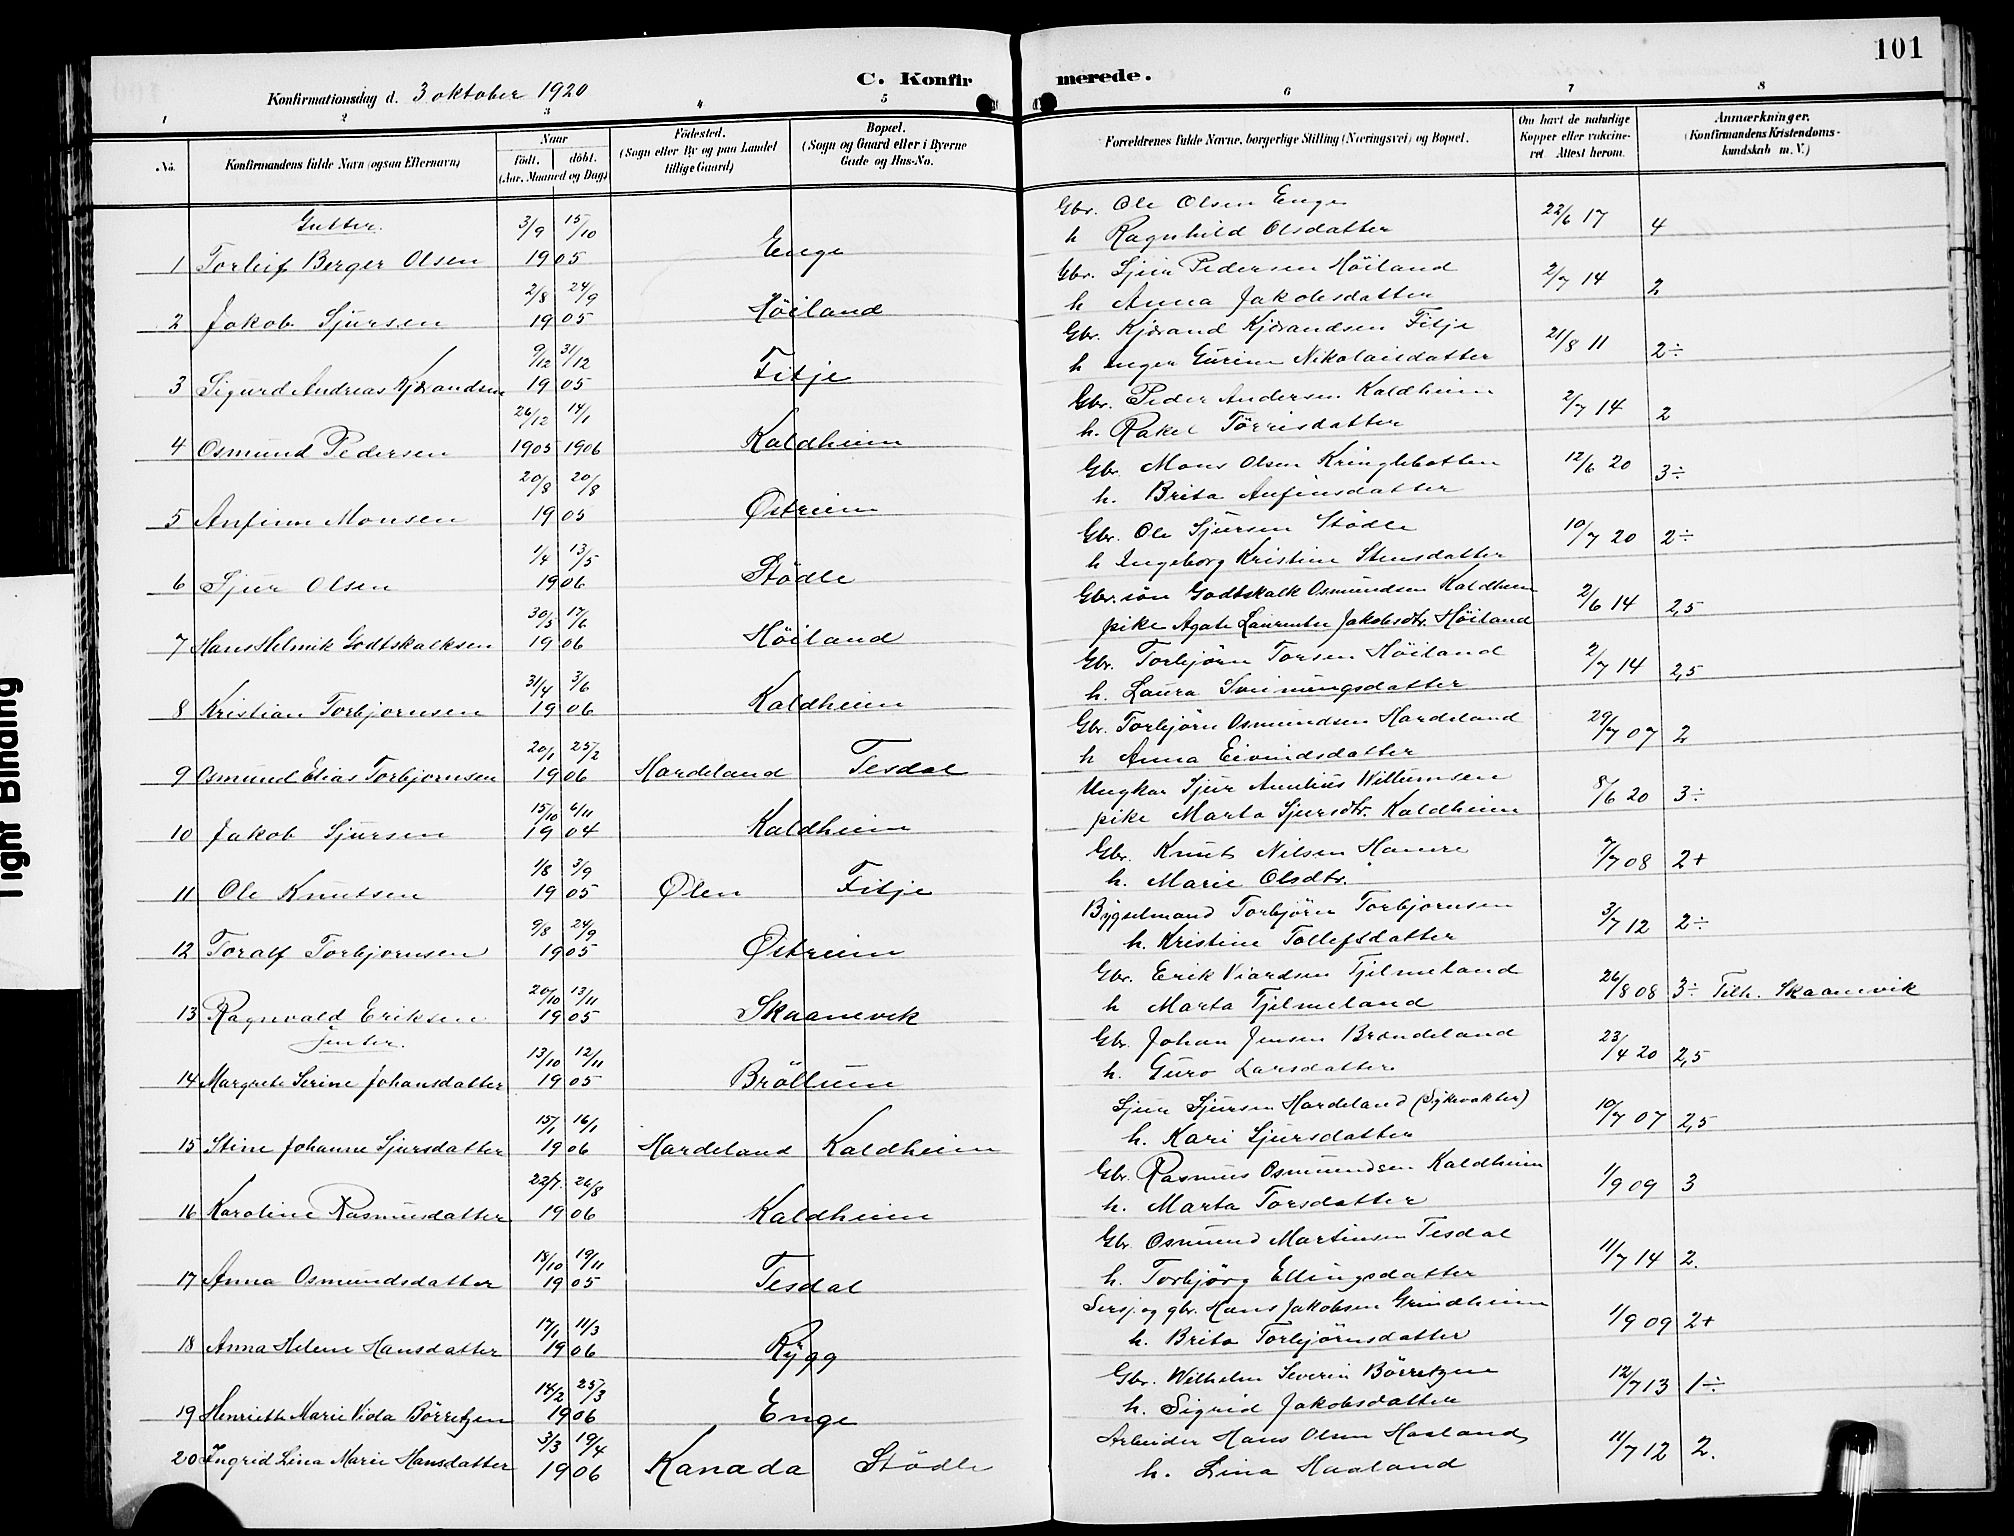 101
C. Konfirmerede.
Konfirmationsdag d. 3 oktober 1920
1 2 3 4 5 6 7 8
No.
Konfirmandens fulde Navn (ogsaa Efternavn)
Naar
født. døbt.
(Aar, Maaned og Dag)
Fødested.
(Sogn eller By og paa Landet
tillige Gaard)
Bopæl.
(Sogn og Gaard eller i Byerne
Gade og Hus-No.
Forældrenes fulde Navne, borgerlige Stilling (Næringsvei) og Bopæl.
Om havt de naturlige
Kopper eller vaksine-
ret Attest herom.
Anmærkninger.
(Konfirmandens Kristendoms-
kundskab m. V.)
Gutter.
3/9 15/10 Gbr. Ole Olsen Enge 22/6 17 4
1 Torleif Berger Olsen 1905 Enge h Ragnhild Olsdatter
2/8 24/9 Gbr. Sjur Pedersen Höiland 2/7 14 2
2 Jakob Sjursen 1905 Höiland h Anna Jakobsdatter
9/12 31/12 Gbr. Kjørand Kjørandsen Fitje 21/8 11 2÷
3 Sigurd Andreas Kjørandsen 1905 Fitje h Inger Eurine Nikolaisdatter
26/12 14/1 Gbr. Peder Andersen Kaldheim 2/7 14 2
4 Osmund Pedersen 1905 1906 Kaldheim h. Rakel Törrisdatter
20/8 20/8 Gbr. Mons Olsen Kringlebotten 12/6 20 3÷
5 Anfinn Monsen 1905 Østreim h. Brita Anfinsdatter
1/4 13/5 Gbr. Ole Sjursen Stödle 10/7 20 2÷
6 Sjur Olsen 1906 Stödle h Ingeborg Kristine Stensdatter
30/5 17/6 Gbr. sön Godtskalk Osmundsen Kaldheim 2/6 14 2,5
7 Hans Helmik Godtskalksen 1906 Höiland pike Agate Laurentse Jakobsdtr. Höiland
31/4 3/6 Gbr. Torbjörn Torsen Höiland 2/7 14 2,5
8 Kristian Torbjornsen 1906 Kaldheim h. Laura Sveinungsdatter
20/1 25/2 Gbr. Torbjörn Osmundsen Hardeland 29/7 07 2
9 Osmund Elias Torbjornsen 1906 Hardeland Tesdal h Anna Eivindsdatter
15/10 6/11 Ungkar Sjur Amelius Willumsen 8/6 20 3÷
10 Jakob Sjursen 1904 Kaldheim pike Marta Sjursdtr. Kaldheim
1/8 3/9 Gbr. Knut Nilsen Hamre 7/7 08 2+
11 Ole Knutsen 1905 Ølen Fitje h. Marie Olsdtr.
9/8 24/9 Bygselmand Torbjörn Torbjornsen 3/7 12 2÷
12 Toralf Torbjornsen 1905 Østreim h. Kristine Tollefsdatter
20/10 13/11 Gbr. Erik Viardsen Tjelmeland 26/8 08 3÷ Tilh. Skaanevik
13 Ragnvald Eriksen 1905 Skaanevik h Marta Tjelmeland
Jenter.
13/10 12/11 Gbr. Johan Jensen Brandeland 23/4 20 2,5
14 Margrete Serine Johansdatter 1905 Bröllum h. Guro Larsdatter
15/1 16/1 Sjur Sjursen Hardeland (Sykevakter) 10/7 07 2,5
15 Stine Johanne Sjursdatter 1906 Hardeland Kaldheim h. Kari Sjursdatter
22/7. 26/8 Gbr. Rasmus Osmundsen Kaldheim 1/9 09 3
16 Karoline Rasmusdatter 1906 Kaldheim h. Marta Torsdatter
18/10 19/11 Gbr. Osmund Martinsen Tesdal 11/7 14 2.
17 Anna Osmundsdatter 1905 Tesdal h. Torbjörg Ellingsdatter
17/1 11/3 Sersj. og gbr. Hans Jakobsen Grindheim 1/9 09 2+
18 Anna Helene Hansdatter 1906 Rygg h. Brita Torbjörnsdatter
14/2 25/3 Gbr. Wilhelm Severin Börretzen 12/7 13 1÷
19 Henriette Marie Vida Börretzen 1906 Enge h. Sigrid Jakobsdatter
3/3 19/4 Arbeider Hans Olsen Haaland 11/7 12 2.
20 Ingrid Lina Marie Hansdatter 1906 Kanada Stödle h. Lina Haaland
Tight Binding